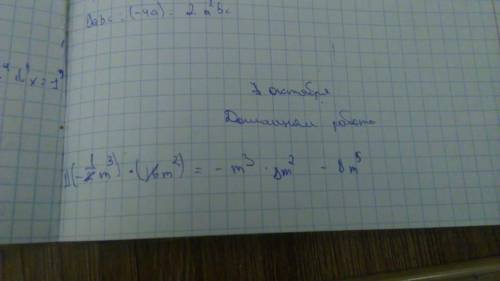 abc · (-4a) = 2 a²bc
7 октября
Домашняя работа
1) (-1/2 m³) · (16m²) = - m³ · 8m² - 8m⁵